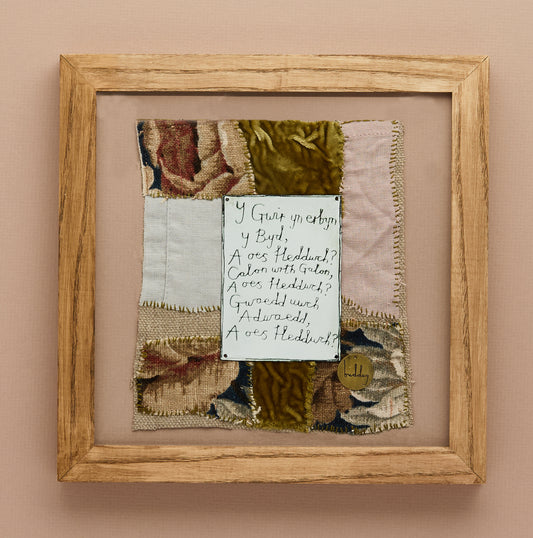 Y Gwir yn erbyn
y Byd,
A oes Heddwch?
Calon wth Galon,
A oes Heddwch?
Gwaedd uwch
Adwaedd,
A oes Heddwch?